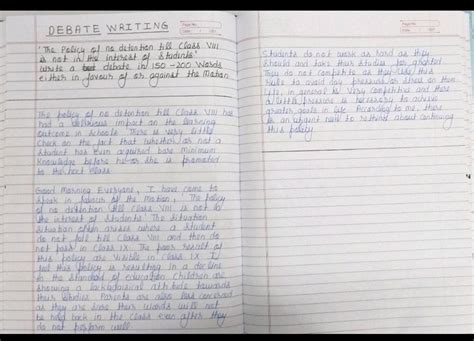 DEBATE WRITING
Page No.
Date
'The Policy of no detention till Class VIII
is not in the interest of Students'
Write a debate in 150-200 Words
either in favour of or against the Motion
The policy of no detention till Class VIII has
had a deleterious impact on the learning
outcome in Schools. There is very little
check on the fact that whether or not a
student has even acquired bare minimum
Knowledge before he or she is promoted
to the next Class
Good Morning Everyone, I have come to
speak in favour of the Motion, 'The policy
of no detention till Class VIII is not in
the interest of students'. The situation
situation often arises where a student
do not fail till Class VIII and then do
not pass in Class IX. The poor result of
this policy are visible in Class IX. I
this policy is resulting in a decline
in the standard of education. Children are
showing a lackadaisical attitude towards
their studies. Parents are also less concerned
as they are sure their wards will not
be held back in the Class even after they
do not perform well.
Page No.
Date
Students do not work as hard as they
should and take their studies for granted
They do not compete as
to avoid any pressure or stress on them
Life, in general is very Competitive and there
a little pressure is necessary to achieve
greater goals in life. According to me, there
is an urgent need to rethink about continuing
this policy